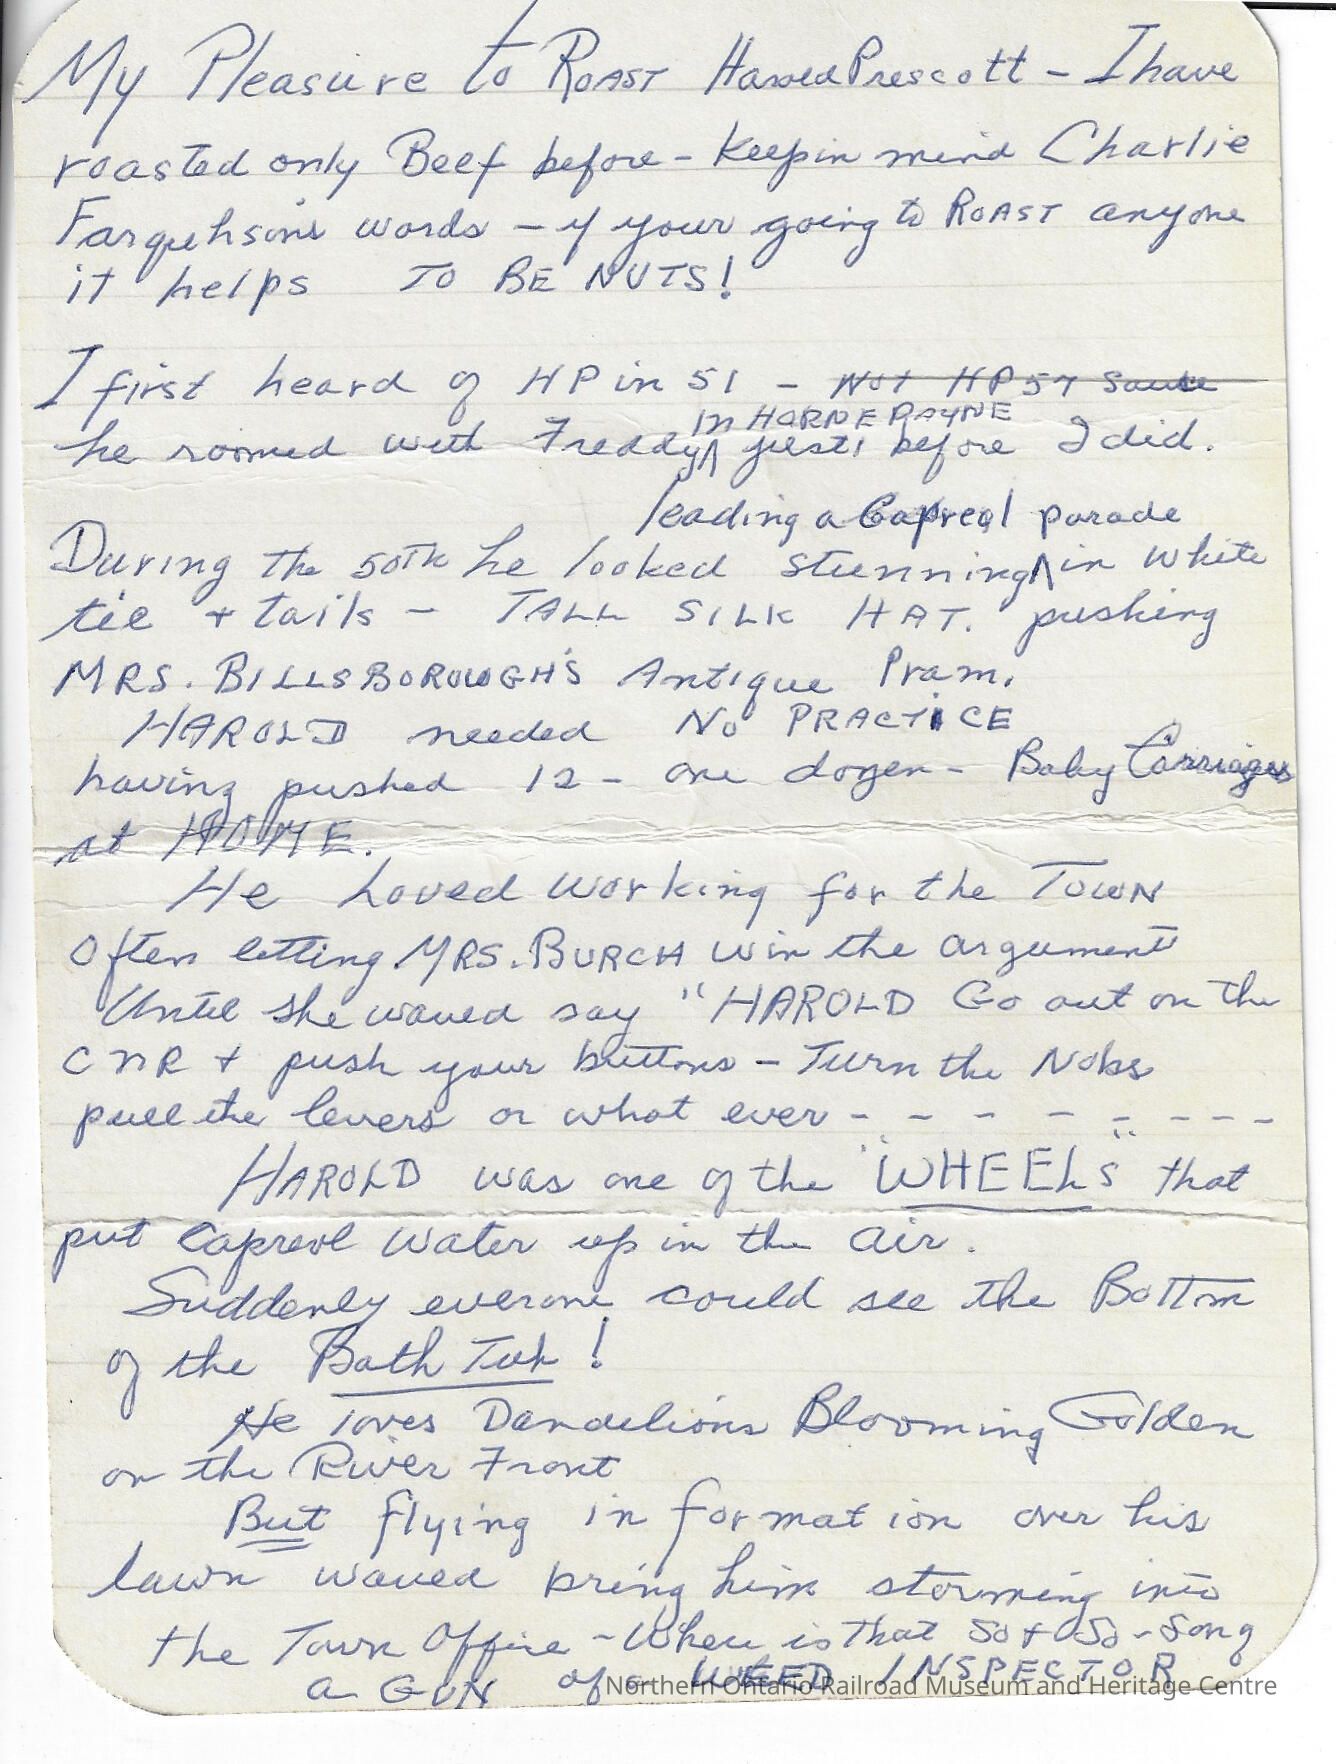 My Pleasure to ROAST Harold Prescott - I have
roasted only Beef before - Keep in mind Charlie
Farquhson's words - if your going to ROAST anyone
it helps TO BE NUTS!
I first heard of HP in 51 - Not HP 57 Sauce
in HORNEPAYNE
he roomed with Freddy just before I did.
leading a Capreol parade
During the 50th he looked stunning in White
tie + tails - TALL SILK HAT. pushing
MRS. BILLSBOROUGH'S Antique Pram.
HAROLD needed No PRACTICE
having pushed 12 - one dozen - Baby Carriages
at HOME.
He Loved working for the TOWN
Often letting MRS. BURCH win the argument
Until she woued say "HAROLD Go out on the
CNR + push your buttons - Turn the Nobs
pull the levers or what ever - - - - - - - -
HAROLD was one of the "WHEELS" that
put Capreol Water up in the air.
Suddenly everone could see the Bottom
of the Bath Tub!
He loves Dandelions Blooming Golden
on the River Front
But flying in formation over his
lawn woued bring him storming into
the Town Office - Where is that So + So - Song
a GUN of a WEED INSPECTOR
Northern Ontario Railroad Museum and Heritage Centre